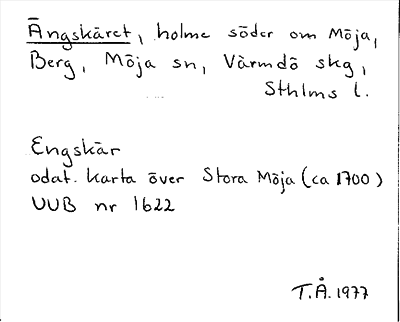 Ängskäret, holme söder om Möja,
Berg, Möja sn, Värmdö skg,
Sthlms l.
Engskär
odat. karta över Stora Möja (ca 1700)
UUB nr 1622
T.Å. 1977